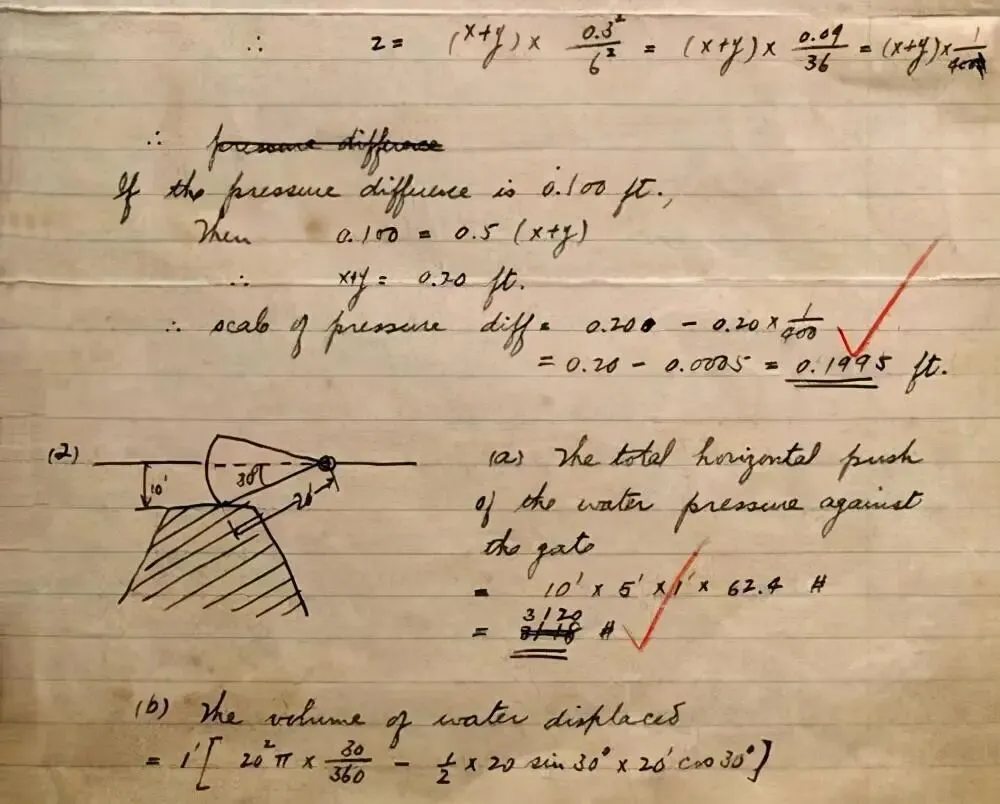 ∴ z = (x+y) × 0.3²/6² = (x+y) × 0.09/36 = (x+y) × 1/400
∴ pressure difference
If the pressure difference is 0.100 ft.,
Then 0.100 = 0.5 (x+y)
∴ x+y = 0.20 ft.
∴ scale of pressure diff = 0.200 - 0.20 × 1/400
= 0.20 - 0.0005 = 0.1995 ft.
(2)
10'
30°
20'
(a) The total horizontal push
of the water pressure against
the gate
= 10' × 5' × 1' × 62.4 #
= 3120 #
(b) The volume of water displaced
= 1' [ 20² π × 30/360 - 1/2 × 20 sin 30° × 20' cos 30° ]